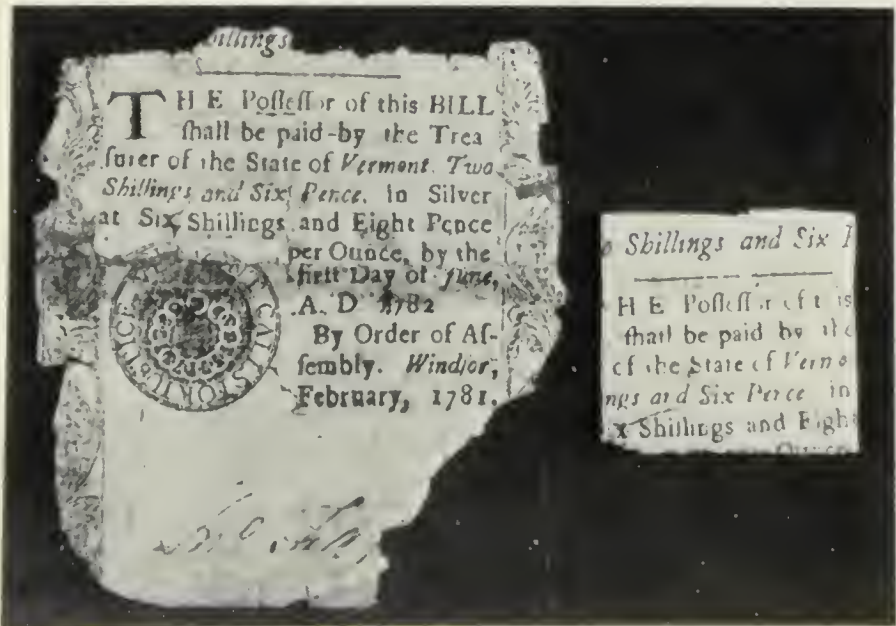 illings
THE Poſſeſſor of this BILL
ſhall be paid by the Trea
ſurer of the State of Vermont. Two
Shillings and Six Pence, in Silver
at Six Shillings and Eight Pence
per Ounce, by the
firſt Day of June,
A. D 1782
By Order of Aſ-
ſembly. Windſor,
February, 1781.
CALESFORIUSTICE
Shillings and Six P
HE Poſſeſſ r of t is
ſhall be paid by the
of the State of Vermo
ngs and Six Pence in
x Shillings and Eigh
Ounce